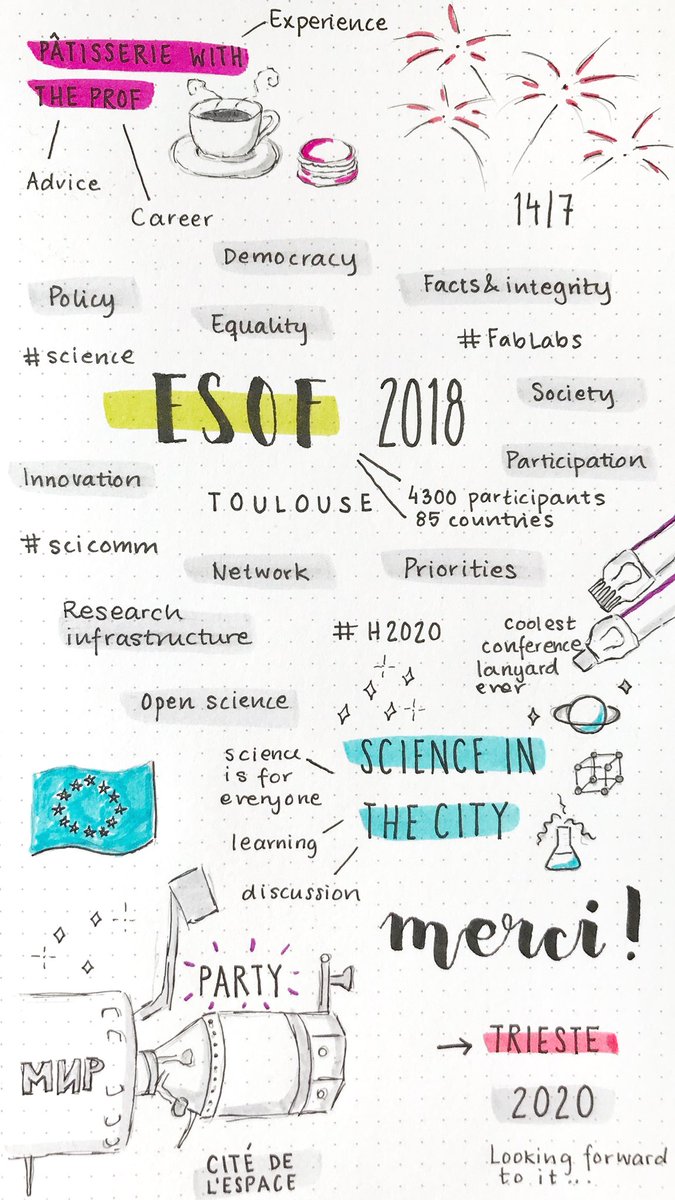 Experience
PÂTISSERIE WITH
THE PROF
Advice
Career
14/7
Democracy
Policy
Facts & integrity
Equality
#FabLabs
#science
ESOF 2018
Society
Participation
Innovation
TOULOUSE
4300 participants
85 countries
#scicomm
Network
Priorities
Research
infrastructure
#H2020
coolest
conference
lanyard
ever
Open science
SCIENCE IN
THE CITY
science
is for
everyone
learning
discussion
merci!
PARTY
МИР
TRIESTE
2020
CITÉ DE
L'ESPACE
Looking forward
to it...